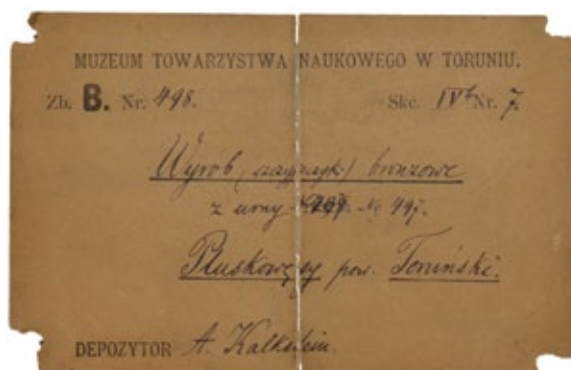 MUZEUM TOWARZYSTWA NAUKOWEGO W TORUNIU.
Zb. B. Nr. 498. Skc. IVb Nr. 7.
Wyrób (szczypczyk.) bronzowe
z urny No 497.
Pluskowęsy pow. Toruński.
DEPOZYTOR A. Kalkstein.